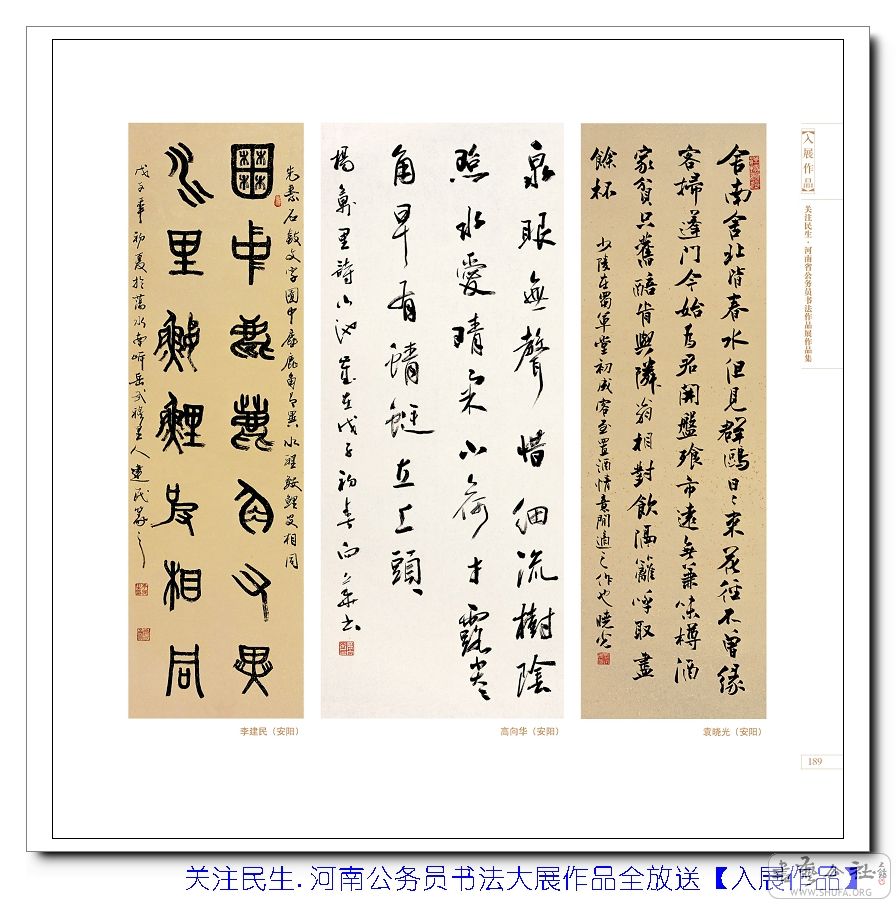 【入展作品】
关注民生·河南省公务员书法作品展作品集
舍南舍北皆春水但見群鷗日〻來花徑不曾緣
客掃蓬門今始為君開盤飱市遠無兼味樽酒
家貧只舊醅肯與隣翁相對飲隔籬呼取盡
餘杯
少陵在蜀草堂初成客至置酒情意閒適之作也曉光
泉眼無聲惜細流樹陰
照水愛晴柔小荷才露尖
角早有蜻蜓立上頭
楊萬里詩小池 歲在戊子初春向華書
囿中鹿角又異
水里鯉相同
戊子年初夏於水南岸岳主人建民篆之
袁晓光（安阳）
高向华（安阳）
李建民（安阳）
189
关注民生.河南公务员书法大展作品全放送【入展作品】
WWW.SHUFA.ORG